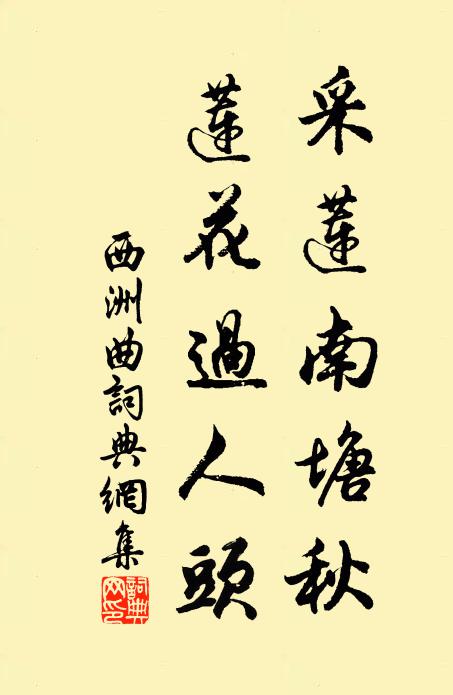 采蓮南塘秋
蓮花過人頭
西洲曲詞典網集
詞典網印